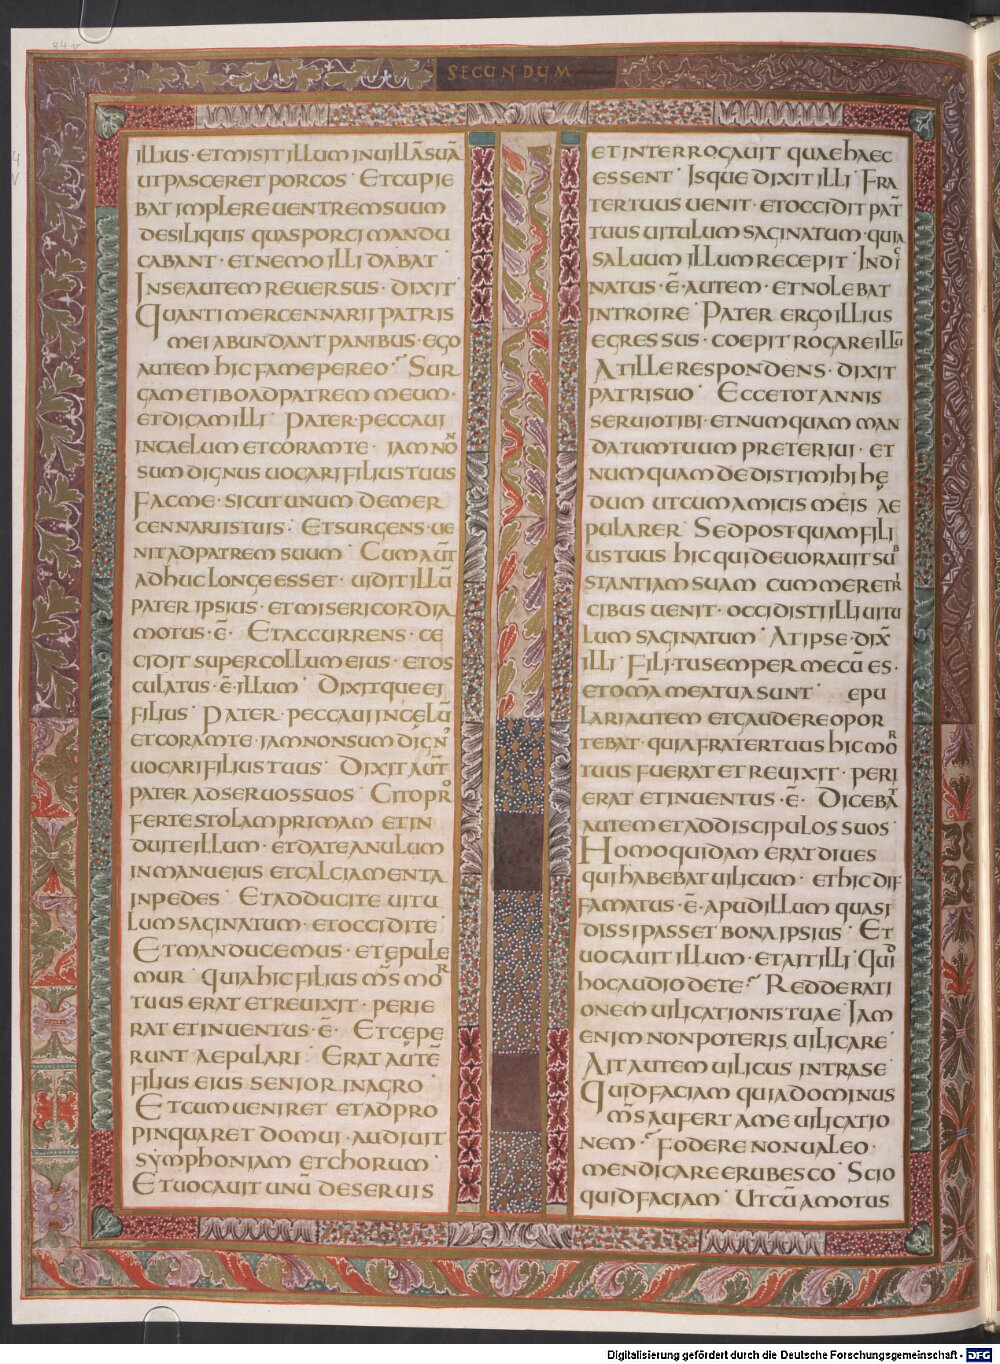 84 v
SECUNDUM
ILLIUS · ET MISIT ILLUM IN UILLĀ SUĀ
UT PASCERET PORCOS · ET CUPIE
BAT IMPLERE UENTREM SUUM
DE SILIQUIS QUAS PORCI MANDU
CABANT · ET NEMO ILLI DABAT ·
IN SE AUTEM REUERSUS · DIXIT ·
QUANTI MERCENNARII PATRIS
MEI ABUNDANT PANIBUS · EGO
AUTEM HIC FAME PEREO · SUR
GAM ET IBO AD PATREM MEUM ·
ET DICAM ILLI · PATER · PECCAUI
IN CAELUM ET CORAM TE · IAM NŌN
SUM DIGNUS UOCARI FILIUS TUUS
FAC ME · SICUT UNUM DE MER
CENNARIIS TUIS · ET SURGENS · UE
NIT AD PATREM SUUM · CUM AUT̄
ADHUC LONGE ESSET · UIDIT ILLŪ
PATER IPSIUS · ET MISERICORDIA
MOTUS · Ē · ET ACCURRENS · CE
CIDIT SUPER COLLUM EIUS · ET OS
CULATUS · Ē · ILLUM · DIXITQUE EI
FILIUS · PATER · PECCAUI IN CELŪ
ET CORAM TE · IAM NON SUM DIGN̄
UOCARI FILIUS TUUS · DIXIT AUT̄
PATER AD SERUOS SUOS · CITO PRO
FERTE STOLAM PRIMAM ET IN
DUITE ILLUM · ET DATE ANULUM
IN MANU EIUS ET CALCIAMENTA
IN PEDES · ET ADDUCITE UITU
LUM SAGINATUM · ET OCCIDITE ·
ET MANDUCEMUS · ET EPULE
MUR · QUIA HIC FILIUS M̄S MOR
TUUS ERAT ET REUIXIT · PERIE
RAT ET INUENTUS · Ē · ET CĘPE
RUNT AEPULARI · ERAT AUTĒ
FILIUS EIUS SENIOR IN AGRO ·
ET CUM UENIRET ET ADPRO
PINQUARET DOMUI · AUDIUIT
SYMPHONIAM ET CHORUM ·
ET UOCAUIT UNŪ DE SERUIS
ET INTERROGAUIT QUAE HAEC
ESSENT · ISQUE DIXIT ILLI · FRA
TER TUUS UENIT · ET OCCIDIT PAT̄
TUUS UITULUM SAGINATUM · QUIA
SALUUM ILLUM RECEPIT · INDIC
NATUS · Ē · AUTEM · ET NOLEBAT
INTROIRE · PATER ERGO ILLIUS
EGRESSUS · COEPIT ROGARE ILLŪ
AT ILLE RESPONDENS · DIXIT
PATRI SUO · ECCE TOT ANNIS
SERUIO TIBI · ET NUMQUAM MAN
DATUM TUUM PRETERIUI · ET
NUMQUAM DEDISTI MIHI HĘ
DUM UT CUM AMICIS MEIS AE
PULARER · SED POSTQUAM FILI
US TUUS HIC QUI DEUORAUIT SUB
STANTIAM SUAM CUM MERETRI
CIBUS UENIT · OCCIDISTI ILLI UITU
LUM SAGINATUM · AT IPSE · DIX̄
ILLI · FILI · TU SEMPER MECŪ ES ·
ET OM̄A MEA TUA SUNT · EPU
LARI AUTEM ET GAUDERE OPOR
TEBAT · QUIA FRATER TUUS HIC MOR
TUUS FUERAT ET REUIXIT · PERI
ERAT ET INUENTUS · Ē · DICEBAT
AUTEM ET AD DISCIPULOS SUOS ·
HOMO QUIDAM ERAT DIUES
QUI HABEBAT UILICUM · ET HIC DIF
FAMATUS · Ē · APUD ILLUM QUASI
DISSIPASSET BONA IPSIUS · ET
UOCAUIT ILLUM · ET AIT ILLI · QUID
HOC AUDIO DE TE · REDDE RATI
ONEM UILICATIONIS TUAE · IAM
ENIM NON POTERIS UILICARE ·
AIT AUTEM UILICUS INTRA SE ·
QUID FACIAM QUIA DOMINUS
M̄S AUFERT A ME UILICATIO
NEM · FODERE NON UALEO ·
MENDICARE ERUBESCO · SCIO
QUID FACIAM · UT CŪ AMOTUS
Digitalisierung gefördert durch die Deutsche Forschungsgemeinschaft - DFG